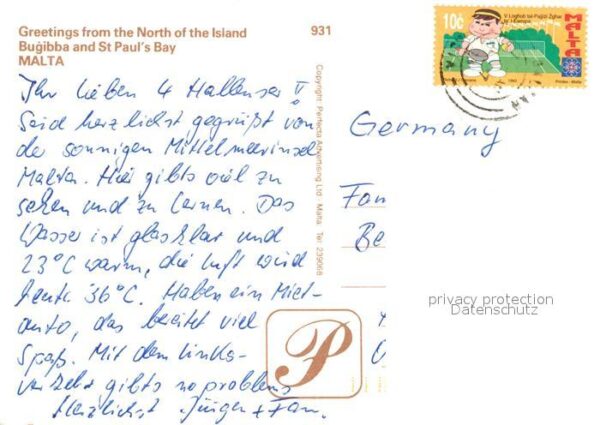 Greetings from the North of the Island
Buġibba and St Paul's Bay
MALTA
931
10c
V Logħob tal-Pajjiżi Żgħar
ta' l-Ewropa
MALTA
Copyright Perfecta Advertising Ltd. Malta. Tel: 239068
Ihr lieben 4 Hallenser!
Seid herzlichst gegrüßt von
der sonnigen Mittelmeerinsel
Malta. Hier gibts viel zu
sehen und zu lernen. Das
Wasser ist glasklar und
23°C warm, die Luft wird
heute 36°C. Haben ein Miet-
auto, das bereitet viel
Spaß. Mit dem Links-
verkehr gibts no problems
Herzlichst Jürgen + Fam.
Germany
Fam
Be
privacy protection
Datenschutz
P